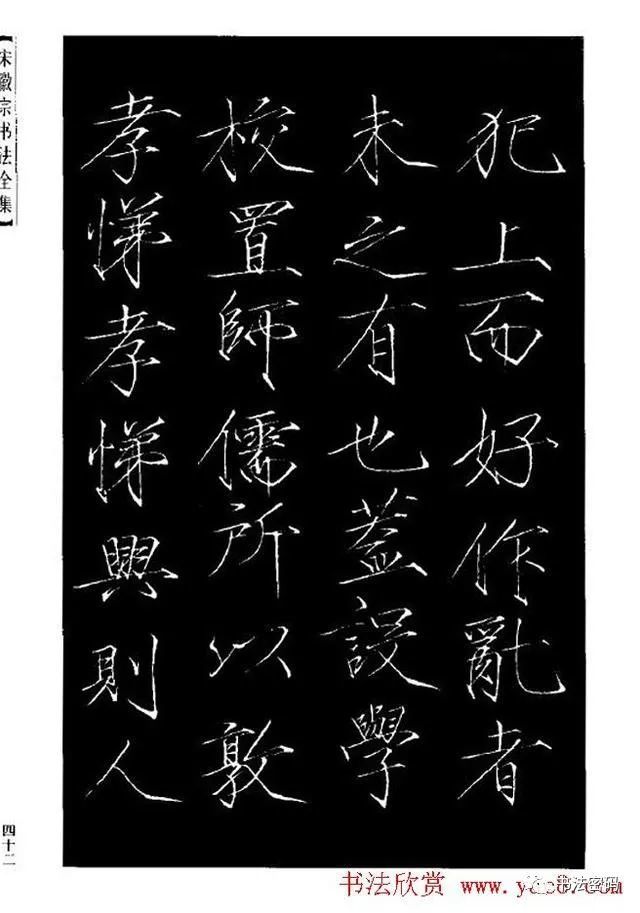 犯上而好作亂者
未之有也蓋設學
校置師儒所以敦
孝悌孝悌興則人
【宋徽宗书法全集】
四十二
书法欣赏 www.y
书法密码